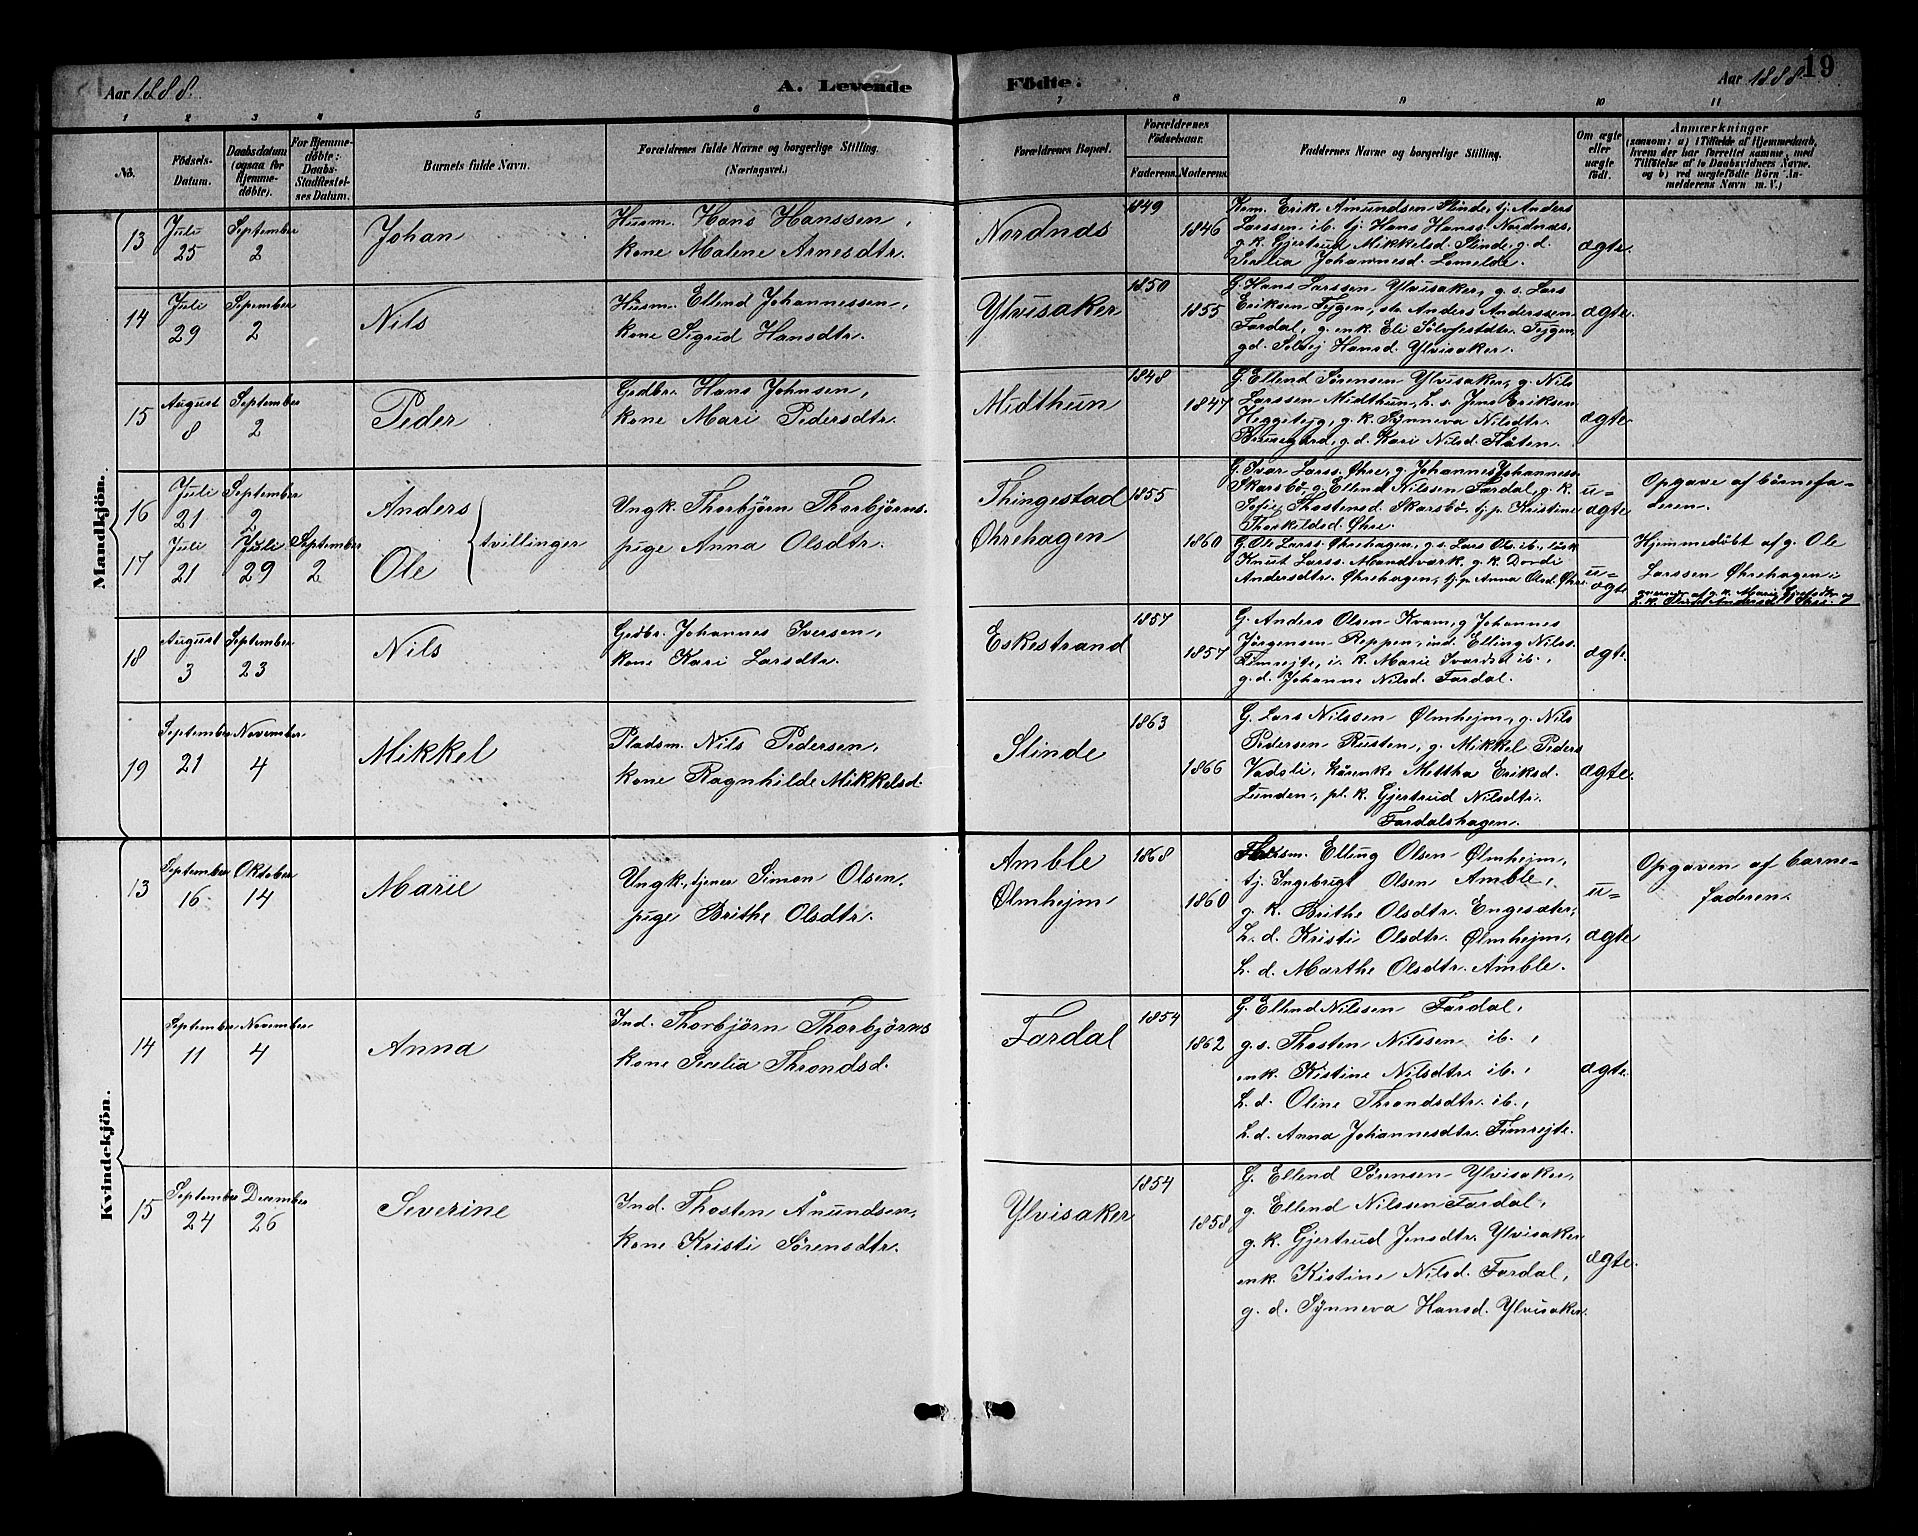 19
Aar 1888.
A. Levende
Födte.
Aar 1888
1 2 3 4 5 6 7 8 9 10 11
No.
Födsels-Datum.
Daabsdatum (ogsaa for Hjemmedöbte).
For Hjemmedöbte: Daabs-Stadfæstelses Datum.
Barnets fulde Navn.
Forældrenes fulde Navne og borgerlige Stilling.
(Næringsvei.)
Forældrenes Bopæl.
Forældrenes Födselsaar.
Faderens Moderens
Faddernes Navne og borgerlige Stilling.
Om ægte eller uægte födt.
Anmærkninger
(saasom: a) i Tilfælde af Hjemmedaab, hvem der har forrettet samme, med Tilföielse af to Daabsvidners Navne, og b) ved uægtefödte Börn Anmelderens Navn m. V.)
Mandkjön.
13 Juli 25 September 2
Johan
Husm. Hans Hanssen,
kone Malene Arnesdtr.
Nordnæs
1849
1846
Krm. Erik Amundsen Slinde, tj. Anders
Larssen ib. tj. Hans Hanss. Nordnæs,
g. k. Gjertrud Mikkelsd. Slinde, g. d.
Serelia Johannesd. Lomelde.
ægte.
14 Juli 29 Sepember 2
Nils
Husm. Ellend Johannessen,
kone Sigrid Hansdtr.
Ylvisaker
1850
1855
G. Hans Larssen Ylvisaker, g. s. Lars
Eriksen Tejgen, str. Anders Anderssen
Fardal, g. enk. Eli Sølvfestdtr. Tejgen,
gd. Solvej Hansd. Ylvisaker.
ægte.
15 August 8 September 2
Peder
Grdbr. Hans Johnsen,
kone Mari Pedersdtr.
Midthun
1848
1847
G. Ellend Sørensen Ylvisaker, g. Nils
Larssen Midthun, L. s. Jens Eriksen
Heggitejg, g. k. Synneva Nilsdtr.
Bruegard, g. d. Kari Nilsd. Slåten.
ægte.
16 Juli 21 September 2
Anders
17 Juli 21 Juli 29 September 2
Ole
tvillinger
Ungk. Thorbjørn Thorbjørns.
pige Anna Olsdtr.
Thingestad
Øhrehagen
1855
1860
G. Ivar Larss. Øhre, g. Johannes Johanness.
Skarsbø, g. Ellend Nilssen Fardal, g. k.
Sofie Thostensd. Skarsbø, tj. p. Kristine
Thorkildsd. Øhre.
u-ægte
Opgave af børnefa-
deren.
G. Ole Larss. Øhrehagen, g. s. Lars Ols. ib.,
Knut Larss. Mandtvark, g. k. Dordi
Andersdtr. Øhrehagen, tj. p. Anna Olsd. Øhre.
u-ægte
Hjemmedøbt af g. Ole
Larssen Øhrehagen i
18 August 3 September 23
Nils
Grdbr. Johannes Iversen,
kone Kari Larsdtr.
Eskestrand
1857
1857
G. Anders Olsen Kvam, g. Johannes
Jørgensen Reppen, ind. Elling Nilss.
Fimrejte, i. k. Marie Ivarsd. ib.,
g. d. Johanne Nilsd. Fardal.
ægte.
19 September 21 November 4
Mikkel
Pladsm. Nils Pedersen,
kone Ragnhilde Mikkelsd.
Slinde
1863
1866
G. Lars Nilssen Ølmhejm, g. Nils
Pedersen Rusten, g. Mikkel Peders
Vadsli, kårenke Mettha Eriksd.
Lunden, pl. k. Gjertrud Nilsdtr.
Fardalshagen.
ægte.
Kvindekjön.
13 September 16 Oktober 14
Marie
Ungk., tjener Simon Olsen,
pige Brithe Olsdtr.
Amble
Ølmhejm
1868
1860
Husm. Elling Olsen Ølmhejm,
tj. Ingebrigt Olsen Amble,
g. k. Brithe Olsdtr. Engesæter,
L. d. Kristi Olsdtr. Ølmhejm,
L. d. Marthe Olsdtr. Amble.
u-ægte
Opgaven af barne-
faderen.
14 September 11 November 4
Anna
Ind. Thorbjørn Thorbjørns
kone Secelia Throndsd.
Fardal
1854
1862
G. Ellend Nilssen Fardal,
g. s. Thosten Nilssen ib.,
enk. Kistine Nilsdtr. ib.,
L. d. Oline Throndsdtr. ib.,
L. d. Anna Johannesdtr. Fimrejte.
ægte.
15 September 24 December 26
Severine
Ind. Thosten Anundsen,
kone Kristi Sørensdtr.
Ylvisaker
1854
1858
G. Ellend Sørensen Ylvisaker,
g. Ellend Nilssen Fardal,
g. k. Gjertrud Jensdtr. Ylvisaker
enk. Kistine Nilsd. Fardal,
g. d. Synneva Hansd. Ylvisaker.
ægte.